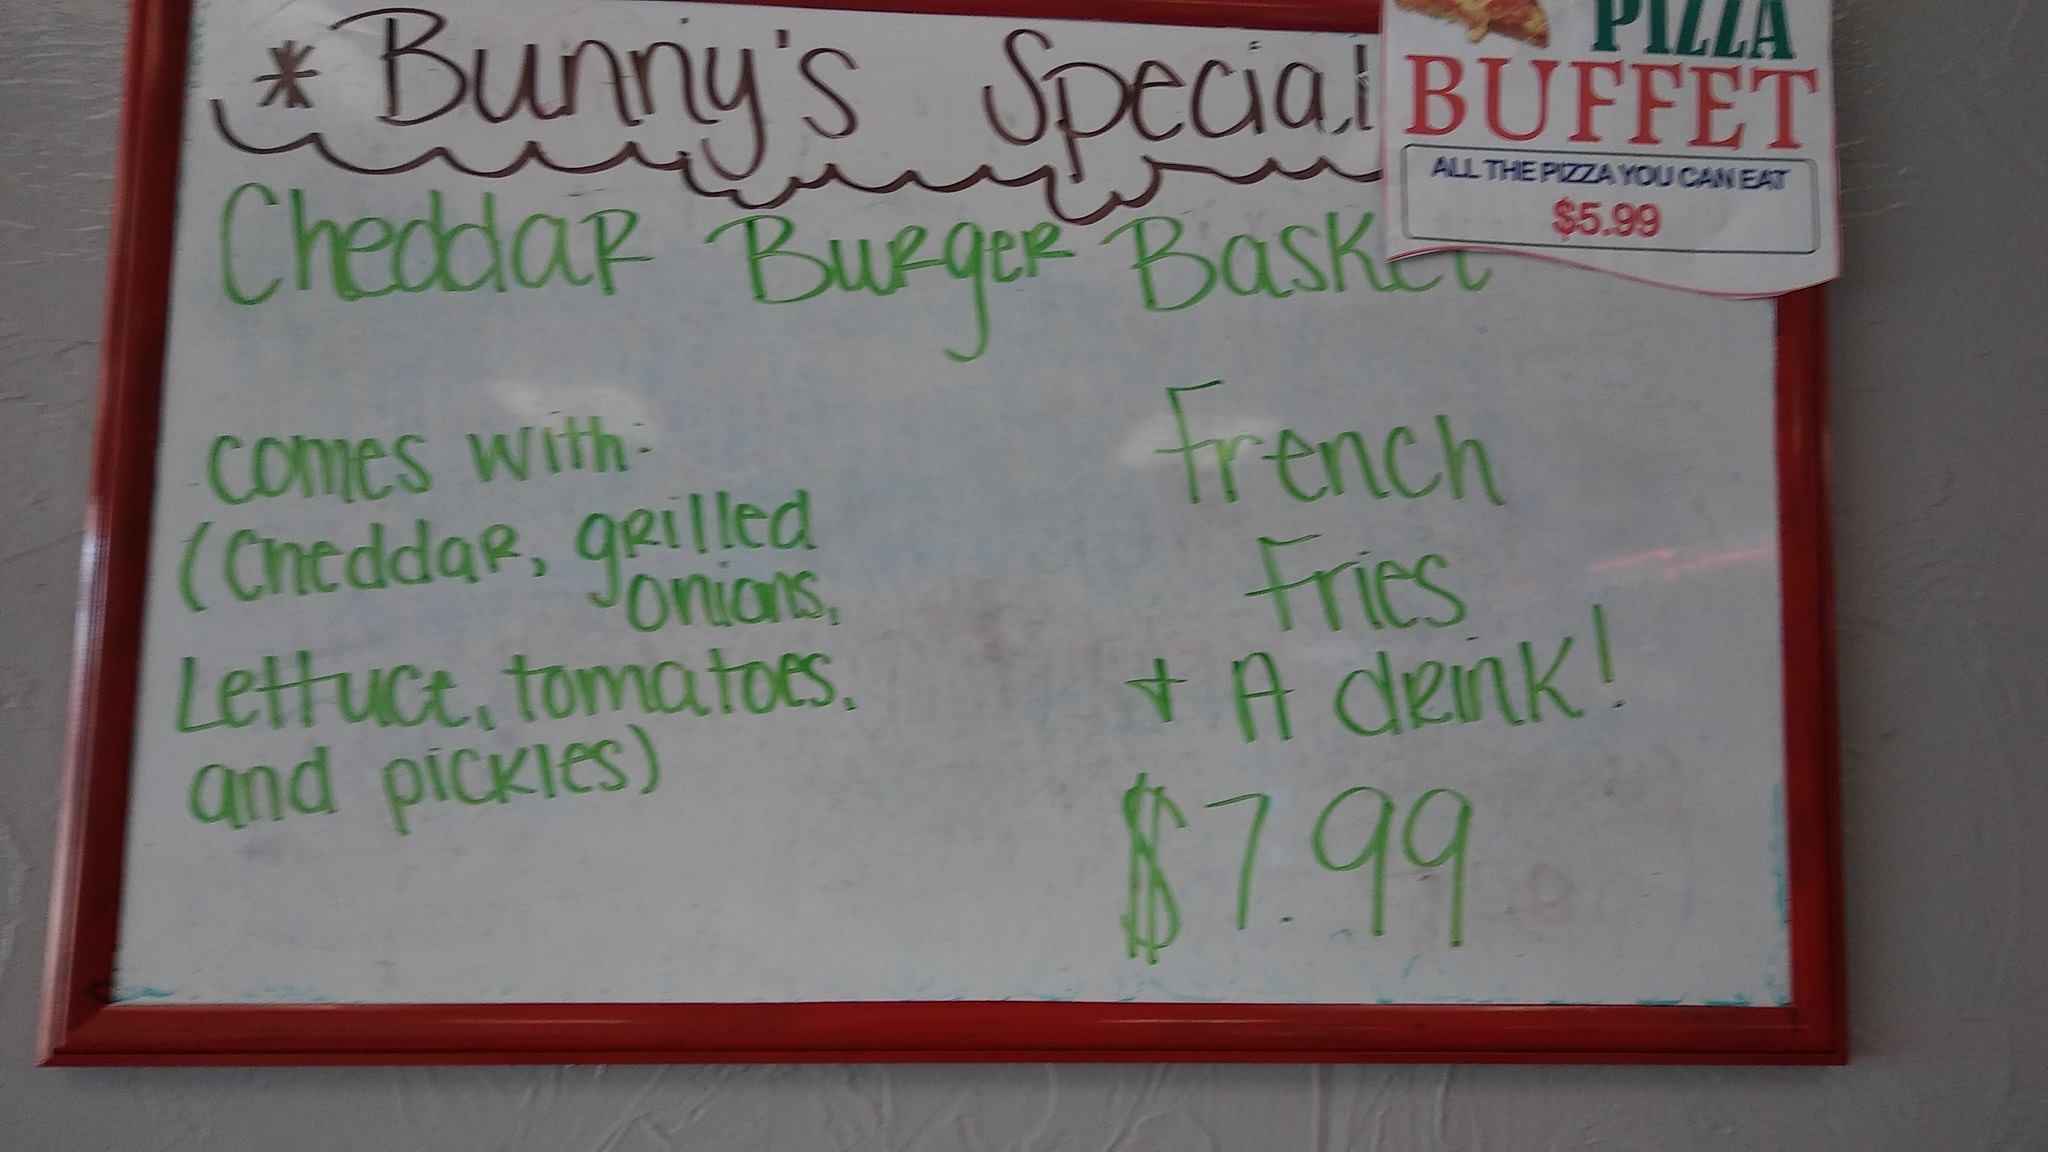 * Bunny's Special
Cheddar Burger Basket
comes with:
(Cheddar, grilled
onions,
Lettuce, tomatoes,
and pickles)
French
Fries
+ A drink!
$7.99
PIZZA
BUFFET
ALL THE PIZZA YOU CAN EAT
$5.99